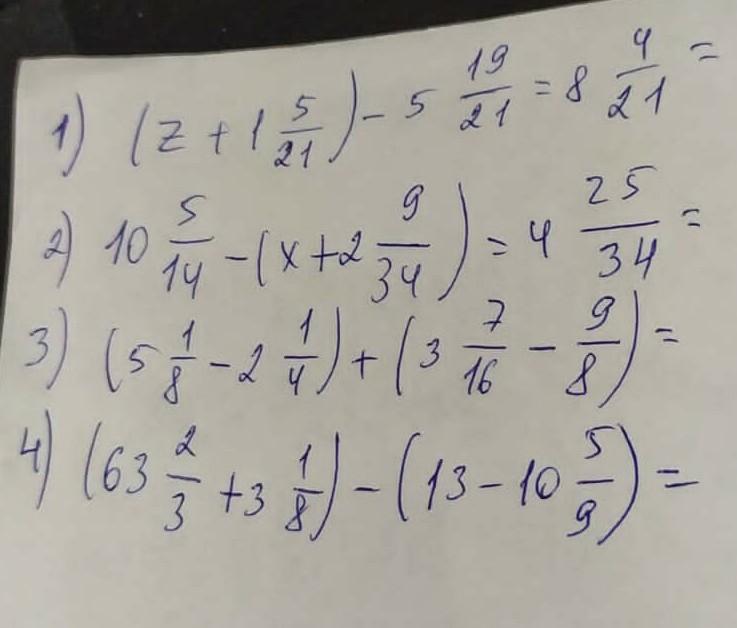 1) (z + 1 5/21) - 5 19/21 = 8 4/21 =
2) 10 5/14 - (x + 2 9/34) = 4 25/34 =
3) (5 1/8 - 2 1/4) + (3 7/16 - 9/8) =
4) (63 2/3 + 3 1/8) - (13 - 10 5/9) =